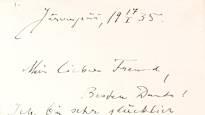 19 17/X 35.
Mein lieber Freund,
Besten Dank!
Ich bin sehr glücklich